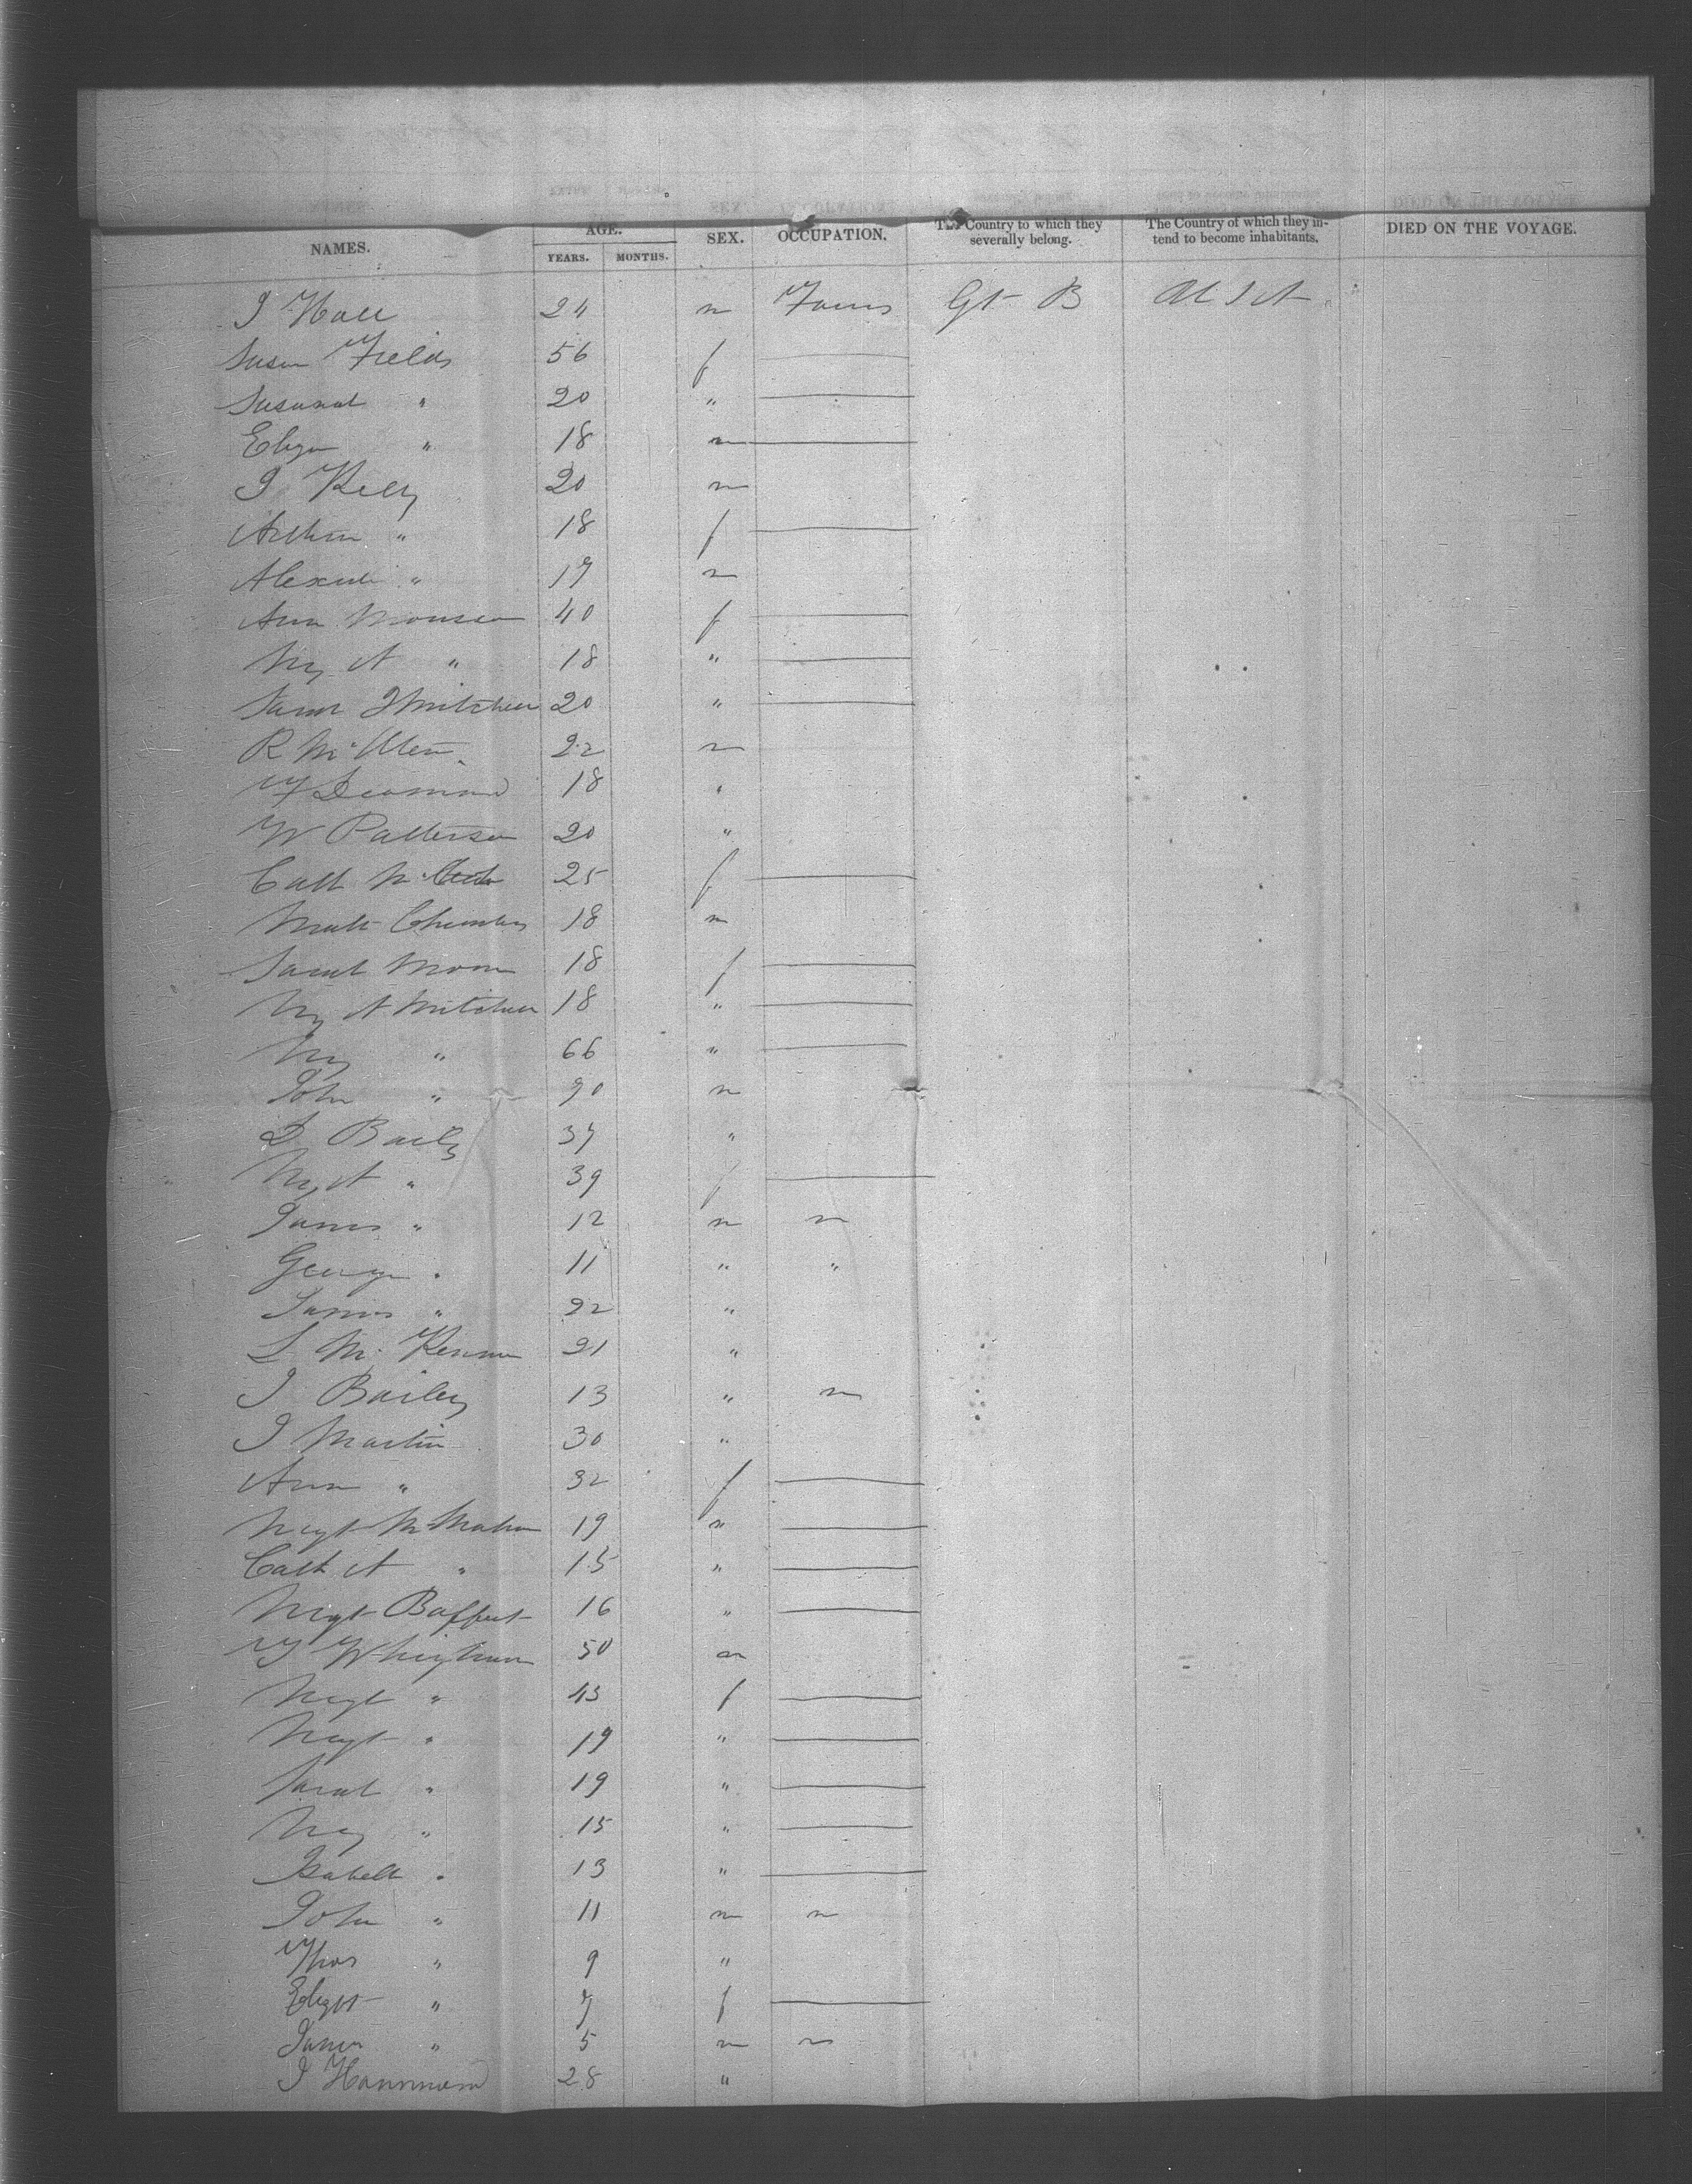 NAMES. AGE. YEARS. MONTHS. SEX. OCCUPATION. The Country to which they severally belong. The Country of which they intend to become inhabitants. DIED ON THE VOYAGE.
J Hall 24 m Farms Gt B U S A
Susan Fields 56 f
Susanah " 20 "
Eliza " 18 m
J Kelly 20 m
Arthur " 18 f
Alexand " 17 m
Ann 40 f
My A " 18 "
Sarah J Mitchell 20 "
R 22 m
18 "
W Patterson 20 "
Cath 25 f
18 m
Sarah Moore 18 f
My A Mitchell 18 "
My " 66 "
John " m
Baily 37 "
My A " 39 f
James " 12 m m
George " 11 " "
James " 22 "
McKenna 21 "
J Bailey 13 " m
J Martin 30 "
Ann " 32 f
Mgt McMahon 19 "
Cath A " 15 "
Mgt 16 "
Whigham 50 m
Mgt " 43 f
Mgt " 19 "
Sarah " 19 "
My " 15 "
Isabella " 13 "
John " 11 m m
Thos " 9 "
Elizbt " 7 f
James " 5 m m
J Hammond 28 "